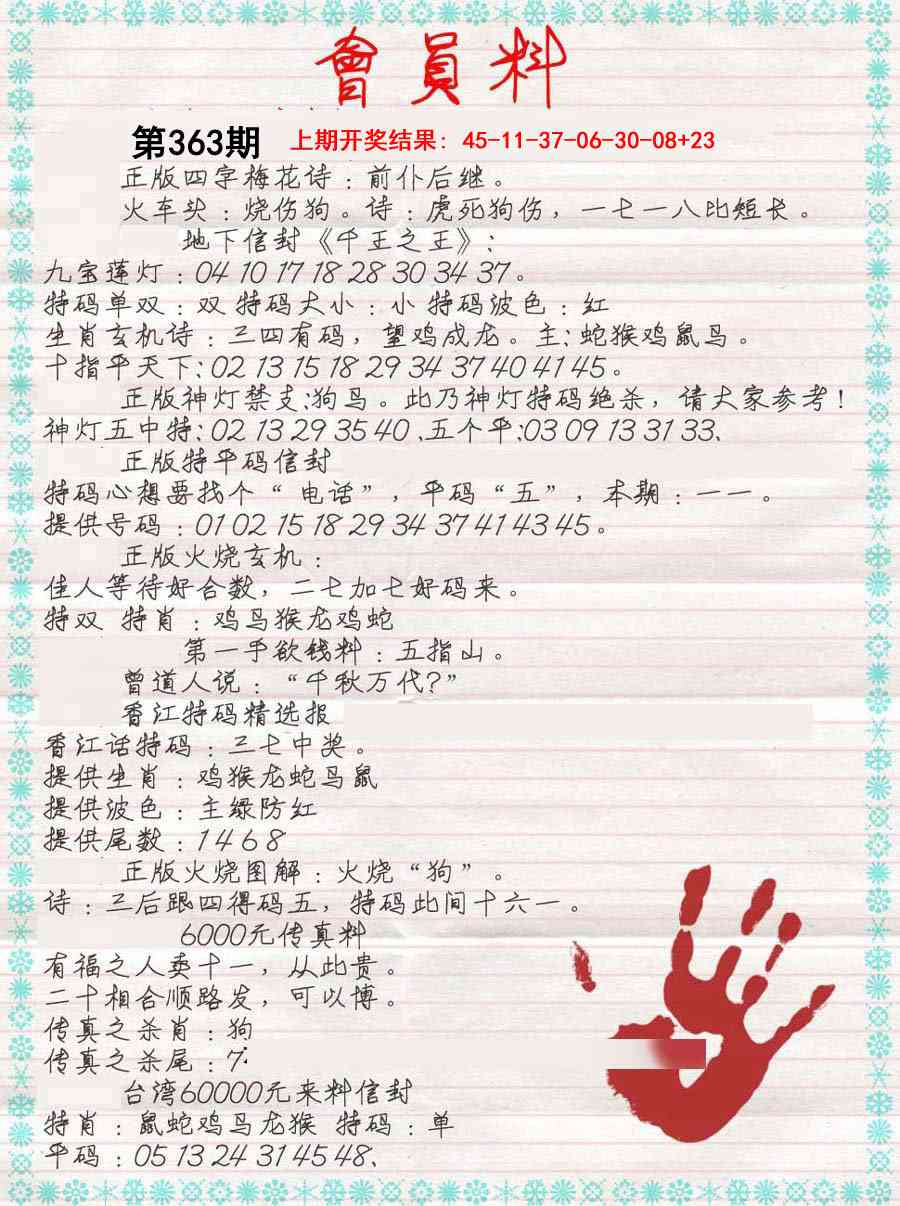 會員料
第363期 上期开奖结果：45-11-37-06-30-08+23
正版四字梅花诗：前仆后继。
火车头：烧伤狗。诗：虎死狗伤，一七一八比短长。
地下信封《千王之王》：
九宝莲灯：04 10 17 18 28 30 34 37。
特码单双：双 特码大小：小 特码波色：红
生肖玄机诗：三四有码，望鸡成龙。主：蛇猴鸡鼠鸟。
十指平天下：02 13 15 18 29 34 37 40 41 45。
正版神灯禁支：狗鸟。此乃神灯特码绝杀，请大家参考！
神灯五中特：02 13 29 35 40、五个平：03 09 13 31 33、
正版特平码信封
特码心想要找个“电话”，平码“五”，本期：一一。
提供号码：01 02 15 18 29 34 37 41 43 45。
正版火烧玄机：
佳人等待好合数，二七加七好码来。
特双 特肖：鸡鸟猴龙鸡蛇
第一手欲钱料：五指山。
曾道人说：“千秋万代?”
香江特码精选报
香江话特码：三七中奖。
提供生肖：鸡猴龙蛇马鼠
提供波色：主绿防红
提供尾数：1 4 6 8
正版火烧图解：火烧“狗”。
诗：三后跟四得码五，特码此间十六一。
6000元传真料
有福之人卖十一，从此贵。
二十相合顺路发，可以博。
传真之杀肖：狗
传真之杀尾：7：
台湾60000元来料信封
特肖：鼠蛇鸡马龙猴 特码：单
平码：05 13 24 31 45 48、